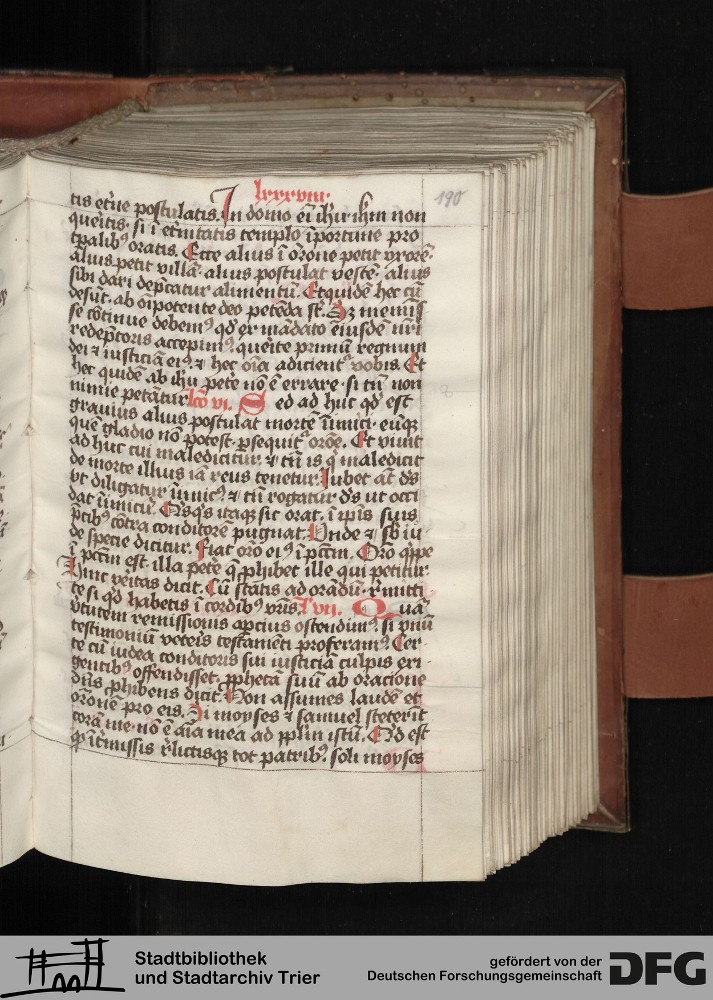 lxxxviii
190
tis et̄ne postulatis. In domo eī ih̄u ih̄m non
querītis. si ī etnitatis templo īportune pro
tp̄alib9 oratis. Ecce alius ī or̄one petit vxorē.
alius petit villā. alius postulat vestē. alius
sibi dari dep̄catur alimentū. Et quidē hec cū
desūt. ab oīpotente deo petēda st̄. Sz meminis
se cōtinue debem9 qd̄ ex mādato eiusdē nr̄i
redēptoris accepim9. querite primū regnum
dei ⁊ iusticiā ei9. ⁊ hec oīa adicient̄ vobis. Et
hec quidē ab ih̄u pete nō ē errare. si tn̄ non
nimie petātur lc̄o vi. Sed ad huc qd̄ est
grauius alius postulat mortē inimici. eūq
quē gladio nō potest. ꝑsequit̄ or̄oe. Et viuit
ad huc cui maledicitur. ⁊ tn̄ is q̄ maledicit
de morte illius iā reus tenetur. Iubet at̄ ds̄
vt diligatur inimic9 ⁊ tn̄ rogatur ds̄ vt occi
dat inimicū. Qisq̄s itaq sic orat. ī ip̄is suis
p̄cib9 cōtra conditorē pugnat. Vnde ⁊ sb̄ iu
de specie dicitur. Fiat or̄o ei9 ī pc̄cm. Or̄o q̄ppe
ī pc̄cm est. illa pete q̄ ꝓhibet ille qui petitur
Hinc veritas dicit. Cū statis ad orādū. r̄mitti
te si qd̄ habetis ī cordib9 vr̄is l vii. Quā
v̄tutem remissionis apcius ostendim9. si vnū
testimoniū veteris testamēti proferam9. Cer
te cū iudea conditoris sui iusticiā culpis exi
gentib9 offendisset. ꝓphetā suū ab oracione
dn̄s ꝓhibens dicit. Non assumes laudē et
or̄onē pro eis. Si moyses ⁊ samuel steterīt
corā me. nō ē aīa mea ad pp̄lm istū. Qd̄ est
ꝙ īt̄missis r̄lictisq tot patrib9. soli moyses
Stadtbibliothek
und Stadtarchiv Trier
gefördert von der
Deutschen Forschungsgemeinschaft
DFG